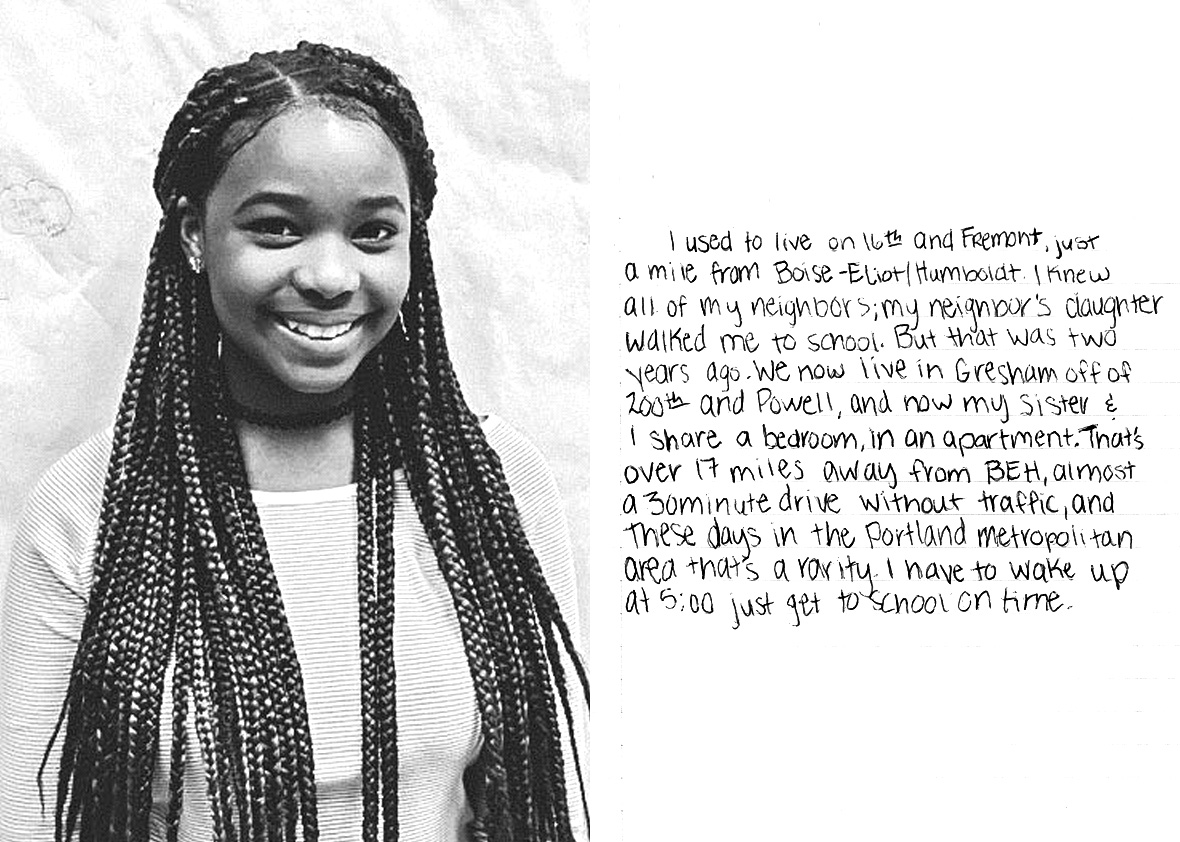 I used to live on 16th and Fremont, just
a mile from Boise-Eliot/Humboldt. I knew
all of my neighbors; my neighbor's daughter
walked me to school. But that was two
years ago. We now live in Gresham off of
200th and Powell, and now my sister &
I share a bedroom, in an apartment. That's
over 17 miles away from BEH, almost
a 30 minute drive without traffic, and
these days in the Portland metropolitan
area that's a rarity. I have to wake up
at 5:00 just get to school on time.